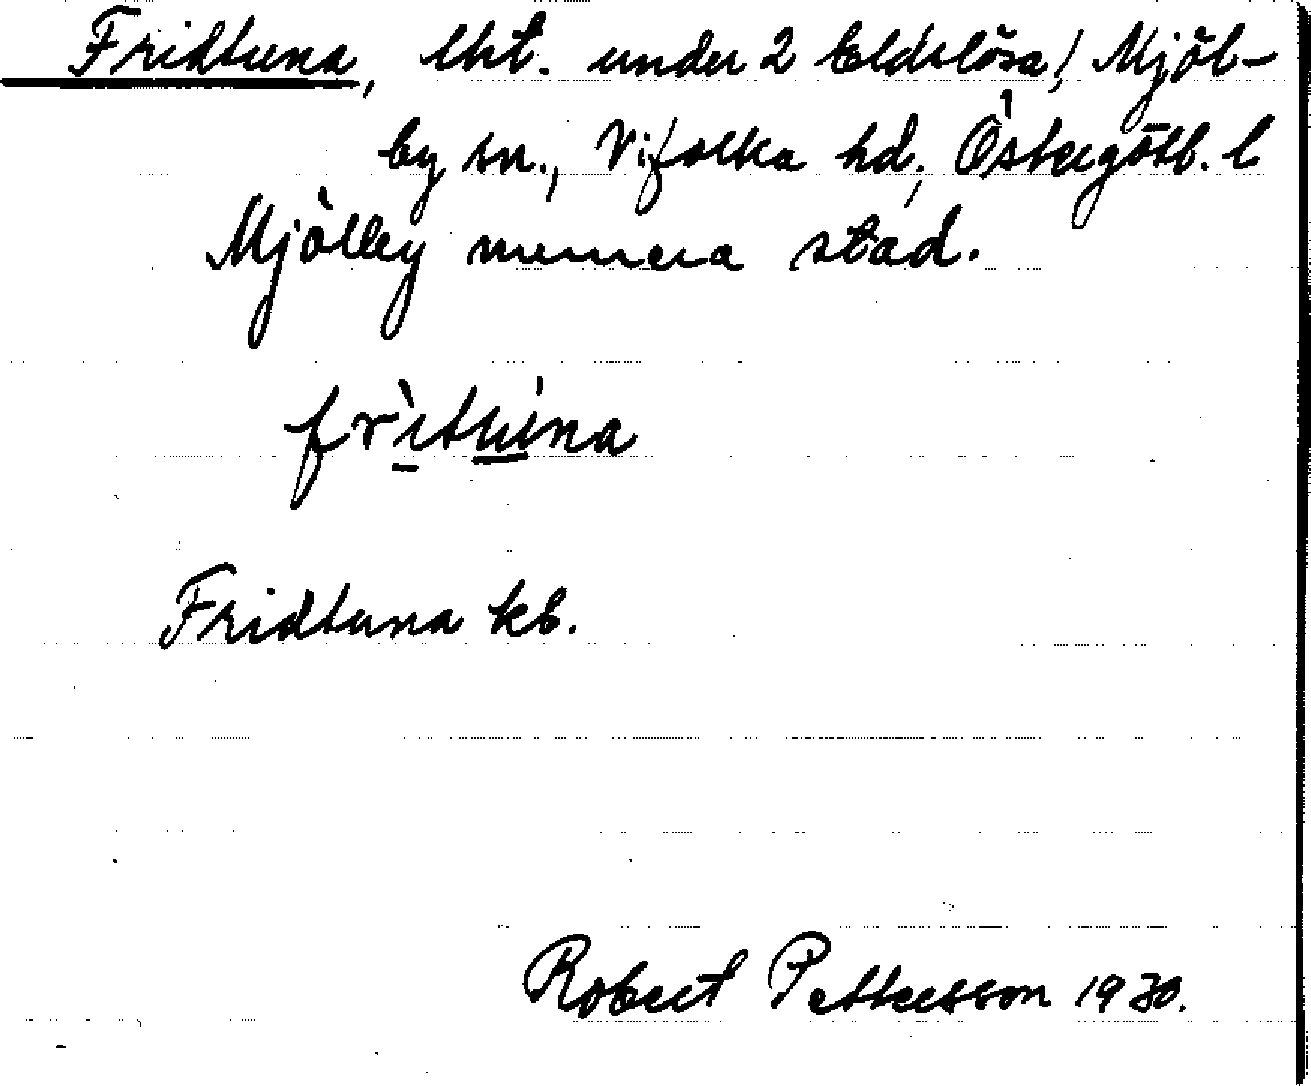 Fridtuna, lht. under 2 Eldslösa, Mjöl-
by sn., Vifolka hd, Östergötl. l
Mjölby numera stad.
frìtúna
Fridtuna kb.
Robert Pettersson 1930.